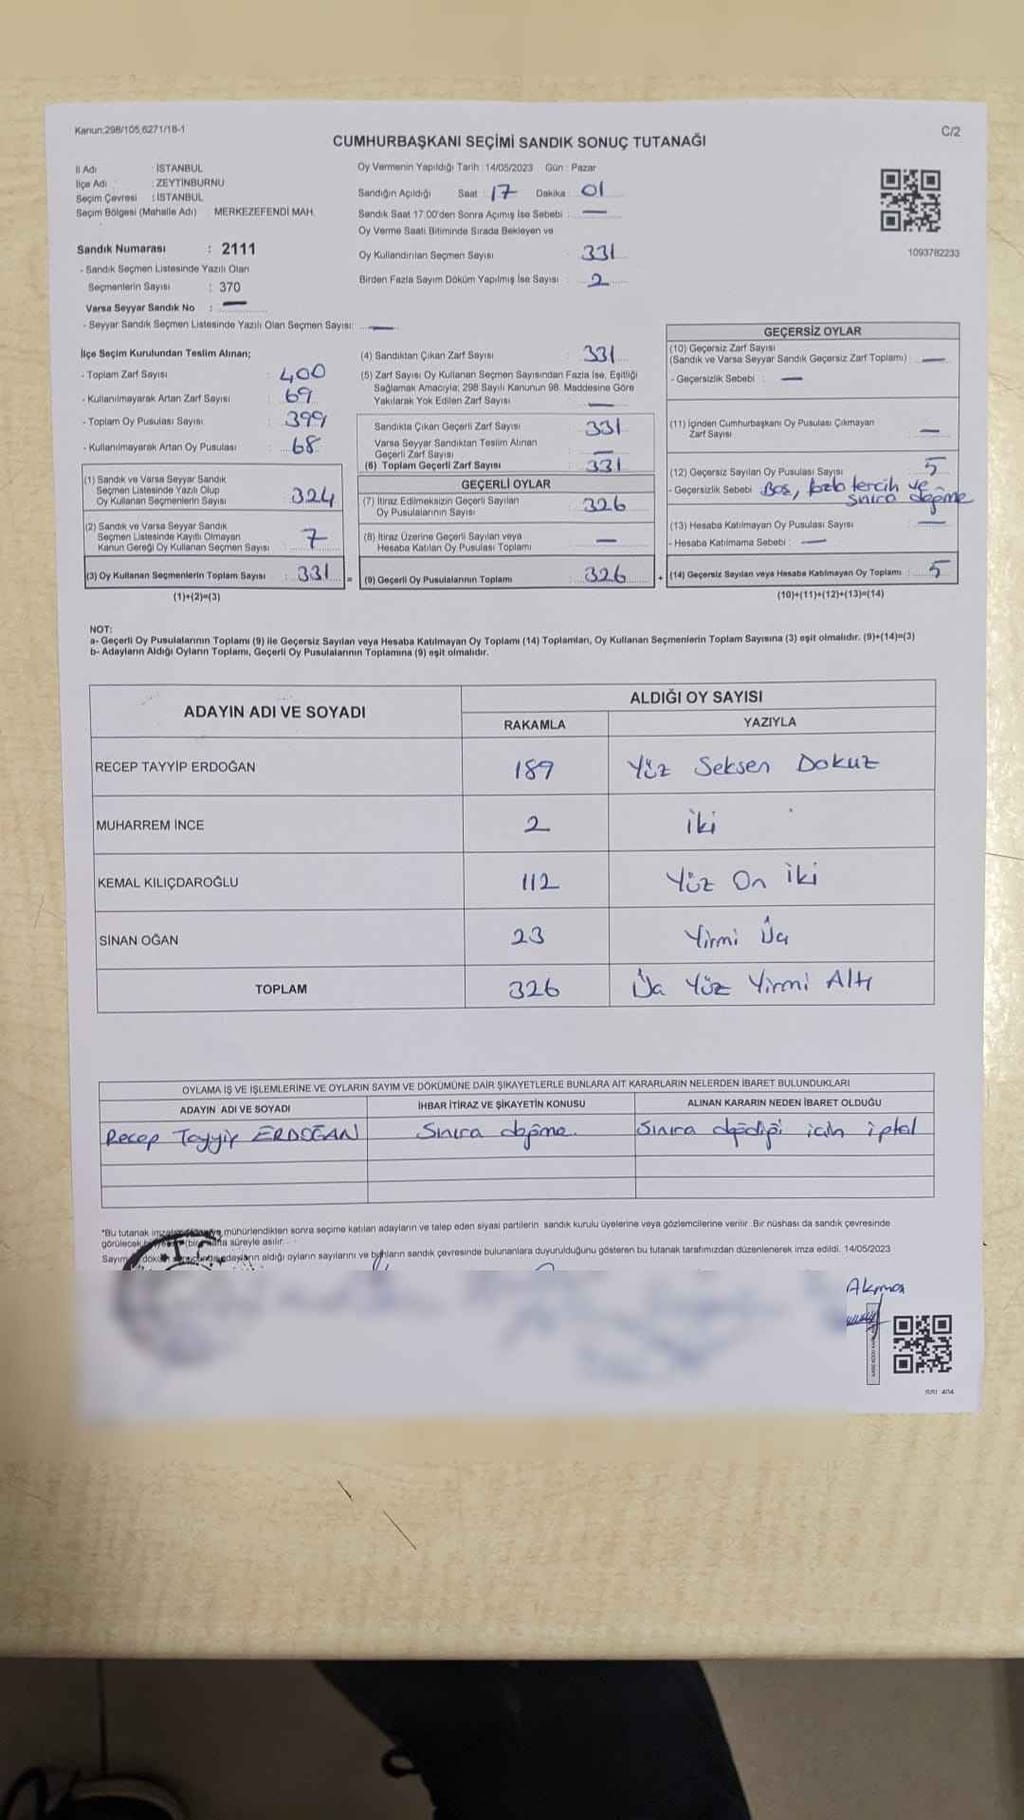 Kanun:298/105,6271/18-1
C/2
CUMHURBAŞKANI SEÇİMİ SANDIK SONUÇ TUTANAĞI
İl Adı : İSTANBUL
İlçe Adı : ZEYTİNBURNU
Seçim Çevresi : İSTANBUL
Seçim Bölgesi (Mahalle Adı) MERKEZEFENDİ MAH.
Oy Vermenin Yapıldığı Tarih :14/05/2023 Gün : Pazar
Sandığın Açıldığı Saat : 17 Dakika : 01
Sandık Saat 17:00'den Sonra Açılmış İse Sebebi : —
Oy Verme Saati Bitiminde Sırada Bekleyen ve
Oy Kullandırılan Seçmen Sayısı : 331
Birden Fazla Sayım Döküm Yapılmış İse Sayısı : 2
1093782233
Sandık Numarası : 2111
- Sandık Seçmen Listesinde Yazılı Olan
Seçmenlerin Sayısı : 370
Varsa Seyyar Sandık No : —
- Seyyar Sandık Seçmen Listesinde Yazılı Olan Seçmen Sayısı: —
İlçe Seçim Kurulundan Teslim Alınan;
- Toplam Zarf Sayısı : 400
- Kullanılmayarak Artan Zarf Sayısı : 69
- Toplam Oy Pusulası Sayısı : 399
- Kullanılmayarak Artan Oy Pusulası : 68
(1) Sandık ve Varsa Seyyar Sandık
Seçmen Listesinde Yazılı Olup
Oy Kullanan Seçmenlerin Sayısı : 324
(2) Sandık ve Varsa Seyyar Sandık
Seçmen Listesinde Kayıtlı Olmayan
Kanun Gereği Oy Kullanan Seçmen Sayısı : 7
(3) Oy Kullanan Seçmenlerin Toplam Sayısı : 331 =
(1)+(2)=(3)
(4) Sandıktan Çıkan Zarf Sayısı : 331
(5) Zarf Sayısı Oy Kullanan Seçmen Sayısından Fazla İse, Eşitliği
Sağlamak Amacıyla; 298 Sayılı Kanunun 98. Maddesine Göre
Yakılarak Yok Edilen Zarf Sayısı : —
Sandıkta Çıkan Geçerli Zarf Sayısı : 331
Varsa Seyyar Sandıktan Teslim Alınan
Geçerli Zarf Sayısı : —
(6) Toplam Geçerli Zarf Sayısı : 331
GEÇERLİ OYLAR
(7) İtiraz Edilmeksizin Geçerli Sayılan
Oy Pusulalarının Sayısı : 326
(8) İtiraz Üzerine Geçerli Sayılan veya
Hesaba Katılan Oy Pusulası Toplamı : —
(9) Geçerli Oy Pusulalarının Toplamı : 326 +
GEÇERSİZ OYLAR
(10) Geçersiz Zarf Sayısı
(Sandık ve Varsa Seyyar Sandık Geçersiz Zarf Toplamı) : —
- Geçersizlik Sebebi : —
(11) İçinden Cumhurbaşkanı Oy Pusulası Çıkmayan
Zarf Sayısı : —
(12) Geçersiz Sayılan Oy Pusulası Sayısı : 5
- Geçersizlik Sebebi : Boş, fazla tercih ve
sınıra değme
(13) Hesaba Katılmayan Oy Pusulası Sayısı : —
- Hesaba Katılmama Sebebi : —
(14) Geçersiz Sayılan veya Hesaba Katılmayan Oy Toplamı : 5
(10)+(11)+(12)+(13)=(14)
NOT:
a- Geçerli Oy Pusulalarının Toplamı (9) ile Geçersiz Sayılan veya Hesaba Katılmayan Oy Toplamı (14) Toplamları, Oy Kullanan Seçmenlerin Toplam Sayısına (3) eşit olmalıdır. (9)+(14)=(3)
b- Adayların Aldığı Oyların Toplamı, Geçerli Oy Pusulalarının Toplamına (9) eşit olmalıdır.
ADAYIN ADI VE SOYADI
ALDIĞI OY SAYISI
RAKAMLA YAZIYLA
RECEP TAYYİP ERDOĞAN 189 Yüz Seksen Dokuz
MUHARREM İNCE 2 iki
KEMAL KILIÇDAROĞLU 112 Yüz On iki
SİNAN OĞAN 23 Yirmi Üç
TOPLAM 326 Üç Yüz Yirmi Altı
OYLAMA İŞ VE İŞLEMLERİNE VE OYLARIN SAYIM VE DÖKÜMÜNE DAİR ŞİKAYETLERLE BUNLARA AİT KARARLARIN NELERDEN İBARET BULUNDUKLARI
ADAYIN ADI VE SOYADI İHBAR İTİRAZ VE ŞİKAYETİN KONUSU ALINAN KARARIN NEDEN İBARET OLDUĞU
Recep Tayyip ERDOĞAN Sınıra değme Sınıra değdiği için iptal
*Bu tutanak mühürlendikten sonra seçime katılan adayların ve talep eden siyasi partilerin sandık kurulu üyelerine veya gözlemcilerine verilir. Bir nüshası da sandık çevresinde
görülecek süreyle asılır.
Sayım adayların aldığı oyların sayılarını ve bunların sandık çevresinde bulunanlara duyurulduğunu gösteren bu tutanak tarafımızdan düzenlenerek imza edildi. 14/05/2023
T.C.